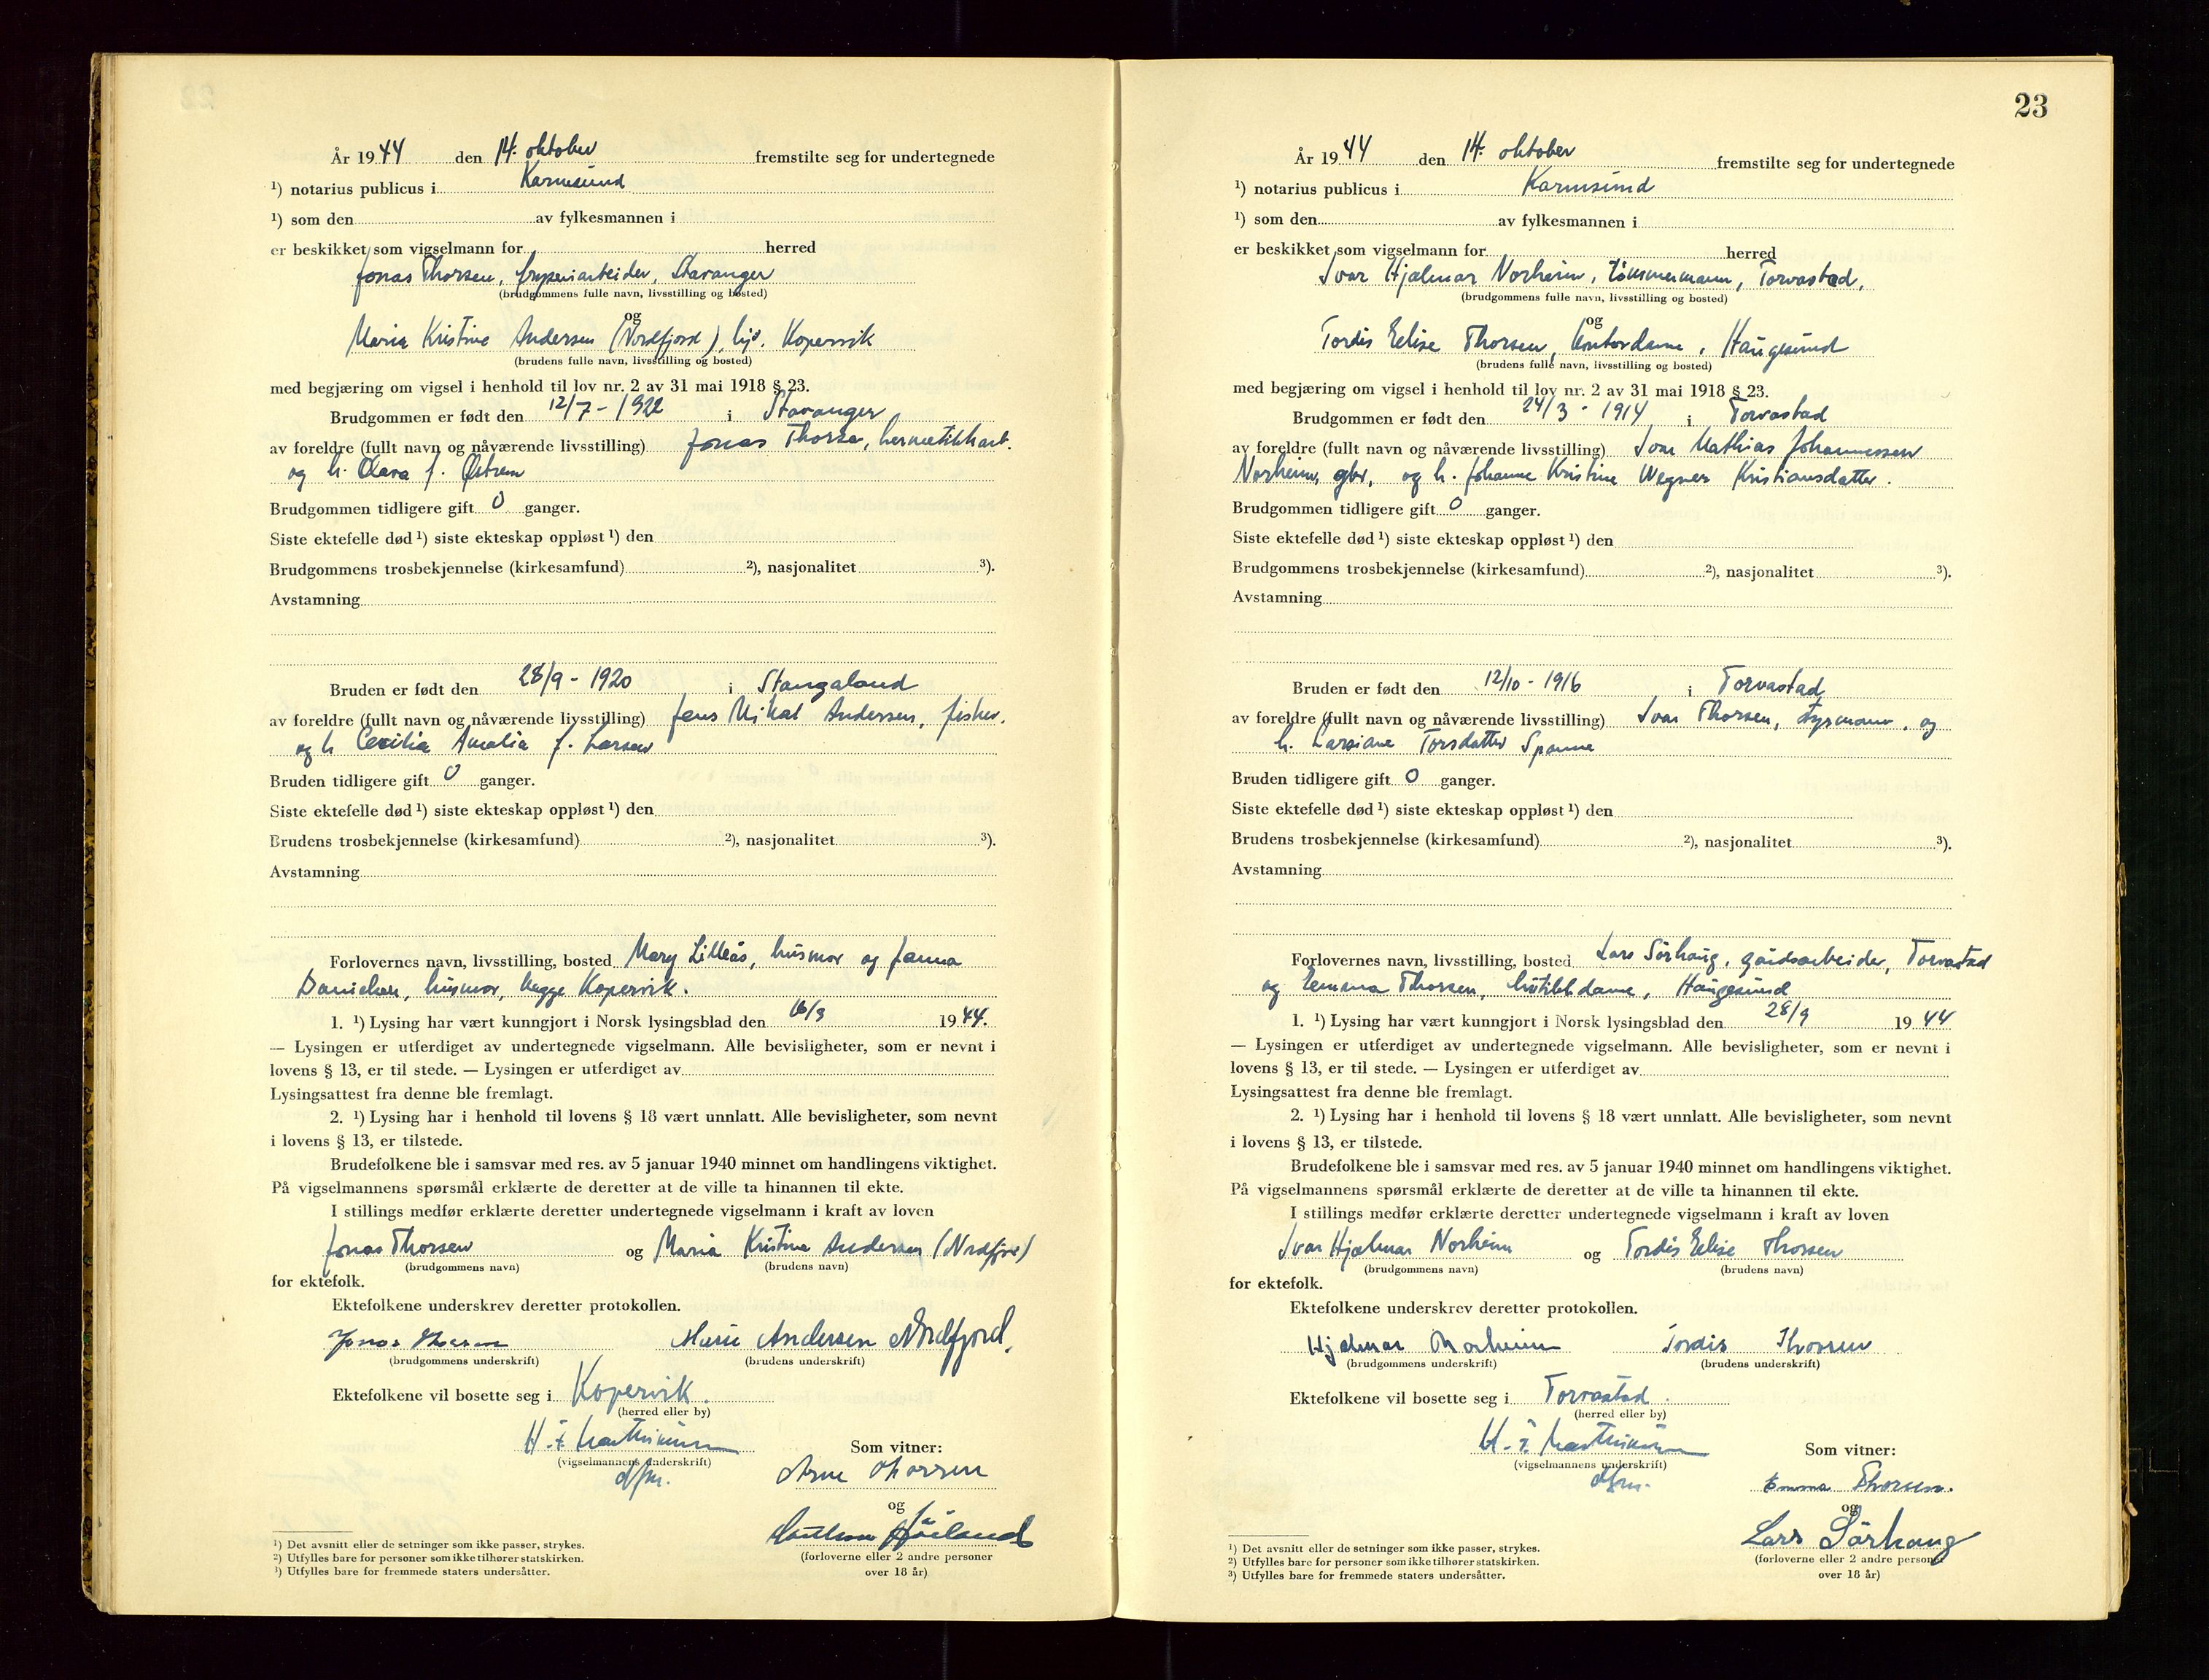 År 1944 den 14. oktober fremstilte seg for undertegnede
¹) notarius publicus i Karmsund
¹) som den av fylkesmannen i
er beskikket som vigselmann for herred
Jonas Thorsen, bryggeriarbeider, Stavanger
(brudgommens fulle navn, livsstilling og bosted)
og
Maria Kristine Andersen (Nordfjord), Kopervik
(brudens fulle navn, livsstilling og bosted)
med begjæring om vigsel i henhold til lov nr. 2 av 31 mai 1918 § 23.
Brudgommen er født den 12/7 - 1922 i Stavanger
av foreldre (fullt navn og nåværende livsstilling) Jonas Thorsen, hermetikkarb.
og h. Klara f. Østrem
Brudgommen tidligere gift 0 ganger.
Siste ektefelle død ¹) siste ekteskap oppløst ¹) den
Brudgommens trosbekjennelse (kirkesamfund) ²), nasjonalitet ³).
Avstamning
Bruden er født den 28/9 - 1920 i Stangaland
av foreldre (fullt navn og nåværende livsstilling) Jens Mikal Andersen, fisker,
og h. Cecilia Amalia f. Larsen
Bruden tidligere gift 0 ganger.
Siste ektefelle død ¹) siste ekteskap oppløst ¹) den
Brudens trosbekjennelse (kirkesamfund) ²), nasjonalitet ³).
Avstamning
Forlovernes navn, livsstilling, bosted Mary Lilleås, husmor og Janna
Danielsen, husmor, begge Kopervik.
1. ¹) Lysing har vært kunngjort i Norsk lysingsblad den 1944.
— Lysingen er utferdiget av undertegnede vigselmann. Alle bevisligheter, som er nevnt i
lovens § 13, er til stede. — Lysingen er utferdiget av
Lysingsattest fra denne ble fremlagt.
2. ¹) Lysing har i henhold til lovens § 18 vært unnlatt. Alle bevisligheter, som nevnt
i lovens § 13, er tilstede.
Brudefolkene ble i samsvar med res. av 5 januar 1940 minnet om handlingens viktighet.
På vigselmannens spørsmål erklærte de deretter at de ville ta hinannen til ekte.
I stillings medfør erklærte deretter undertegnede vigselmann i kraft av loven
Jonas Thorsen og Maria Kristine Andersen (Nordfjord)
(brudgommens navn) (brudens navn)
for ektefolk.
Ektefolkene underskrev deretter protokollen.
Jonas Thorsen Marie Andersen Nordfjord.
(brudgommens underskrift) (brudens underskrift)
Ektefolkene vil bosette seg i Kopervik.
(herred eller by)
(vigselmannens underskrift)
dfm.
Som vitner:
Arne Thorsen
og
Høiland
(forloverne eller 2 andre personer
over 18 år)
¹) Det avsnitt eller de setninger som ikke passer, strykes.
²) Utfylles bare for personer som ikke tilhører statskirken.
³) Utfylles bare for fremmede staters undersåtter.
23
År 1944 den 14. oktober fremstilte seg for undertegnede
¹) notarius publicus i Karmsund
¹) som den av fylkesmannen i
er beskikket som vigselmann for herred
Ivar Hjalmar Norheim, tømmermann, Torvastad,
(brudgommens fulle navn, livsstilling og bosted)
og
Tordis Elise Thorsen, kontordame, Haugesund
(brudens fulle navn, livsstilling og bosted)
med begjæring om vigsel i henhold til lov nr. 2 av 31 mai 1918 § 23.
Brudgommen er født den 24/3 - 1914 i Torvastad
av foreldre (fullt navn og nåværende livsstilling) Ivar Mathias Johannessen
Norheim, gbr, og h. Johanne Kristine Wegner Kristiansdatter.
Brudgommen tidligere gift 0 ganger.
Siste ektefelle død ¹) siste ekteskap oppløst ¹) den
Brudgommens trosbekjennelse (kirkesamfund) ²), nasjonalitet ³).
Avstamning
Bruden er født den 12/10 - 1916 i Torvastad
av foreldre (fullt navn og nåværende livsstilling) Ivar Thorsen, styrmann, og
h. Larsiane Torsdatter Spanne
Bruden tidligere gift 0 ganger.
Siste ektefelle død ¹) siste ekteskap oppløst ¹) den
Brudens trosbekjennelse (kirkesamfund) ²), nasjonalitet ³).
Avstamning
Forlovernes navn, livsstilling, bosted Lars Sørhaug, gårdsarbeider, Torvastad
og Emma Thorsen, butikkdame, Haugesund
1. ¹) Lysing har vært kunngjort i Norsk lysingsblad den 28/9 1944
— Lysingen er utferdiget av undertegnede vigselmann. Alle bevisligheter, som er nevnt i
lovens § 13, er til stede. — Lysingen er utferdiget av
Lysingsattest fra denne ble fremlagt.
2. ¹) Lysing har i henhold til lovens § 18 vært unnlatt. Alle bevisligheter, som nevnt
i lovens § 13, er tilstede.
Brudefolkene ble i samsvar med res. av 5 januar 1940 minnet om handlingens viktighet.
På vigselmannens spørsmål erklærte de deretter at de ville ta hinannen til ekte.
I stillings medfør erklærte deretter undertegnede vigselmann i kraft av loven
Ivar Hjalmar Norheim og Tordis Elise Thorsen
(brudgommens navn) (brudens navn)
for ektefolk.
Ektefolkene underskrev deretter protokollen.
Hjalmar Norheim Tordis Thorsen
(brudgommens underskrift) (brudens underskrift)
Ektefolkene vil bosette seg i Torvastad.
(herred eller by)
(vigselmannens underskrift)
dfm.
Som vitner:
Emma Thorsen.
og
Lars Sørhaug
(forloverne eller 2 andre personer
over 18 år)
¹) Det avsnitt eller de setninger som ikke passer, strykes.
²) Utfylles bare for personer som ikke tilhører statskirken.
³) Utfylles bare for fremmede staters undersåtter.